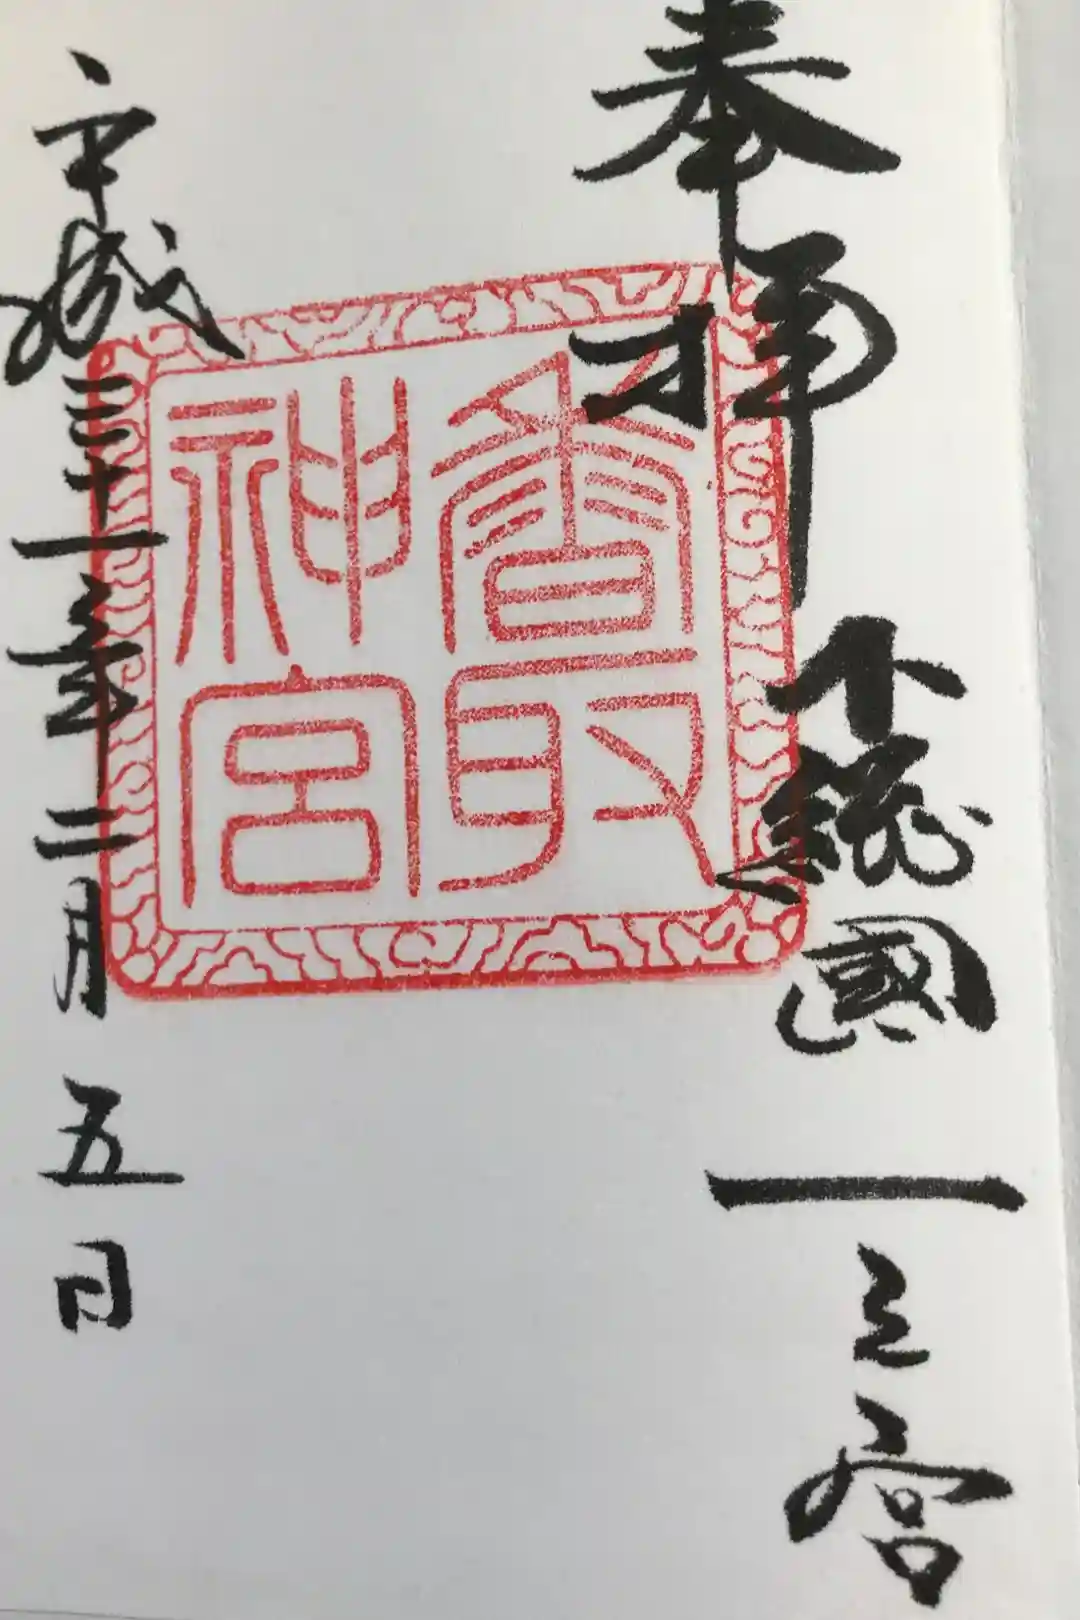 奉拝
下総國
一之宮
香取
神宮
平成三十一年二月五日